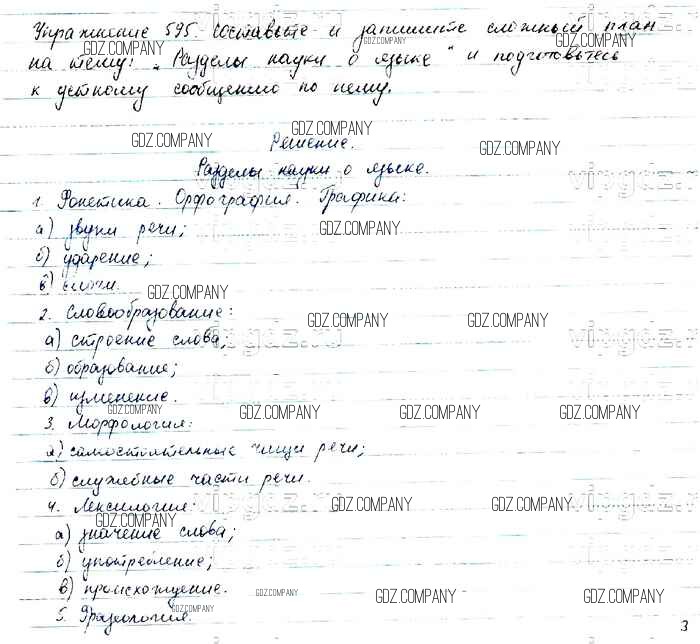 Упражнение 595. Составьте и запишите сложный план
на тему: „Разделы науки о языке" и подготовьтесь
к устному сообщению по нему.
Решение.
Разделы науки о языке.
1. Фонетика. Орфография. Графика:
а) звуки речи;
б) ударение;
в) слоги.
2. Словообразование:
а) строение слова;
б) образование;
в) изменение.
3. Морфология:
а) самостоятельные части речи;
б) служебные части речи.
4. Лексикология:
а) значение слова;
б) употребление;
в) происхождение.
5. Фразеология.
3
GDZ.COMPANY
vipgdz.ru